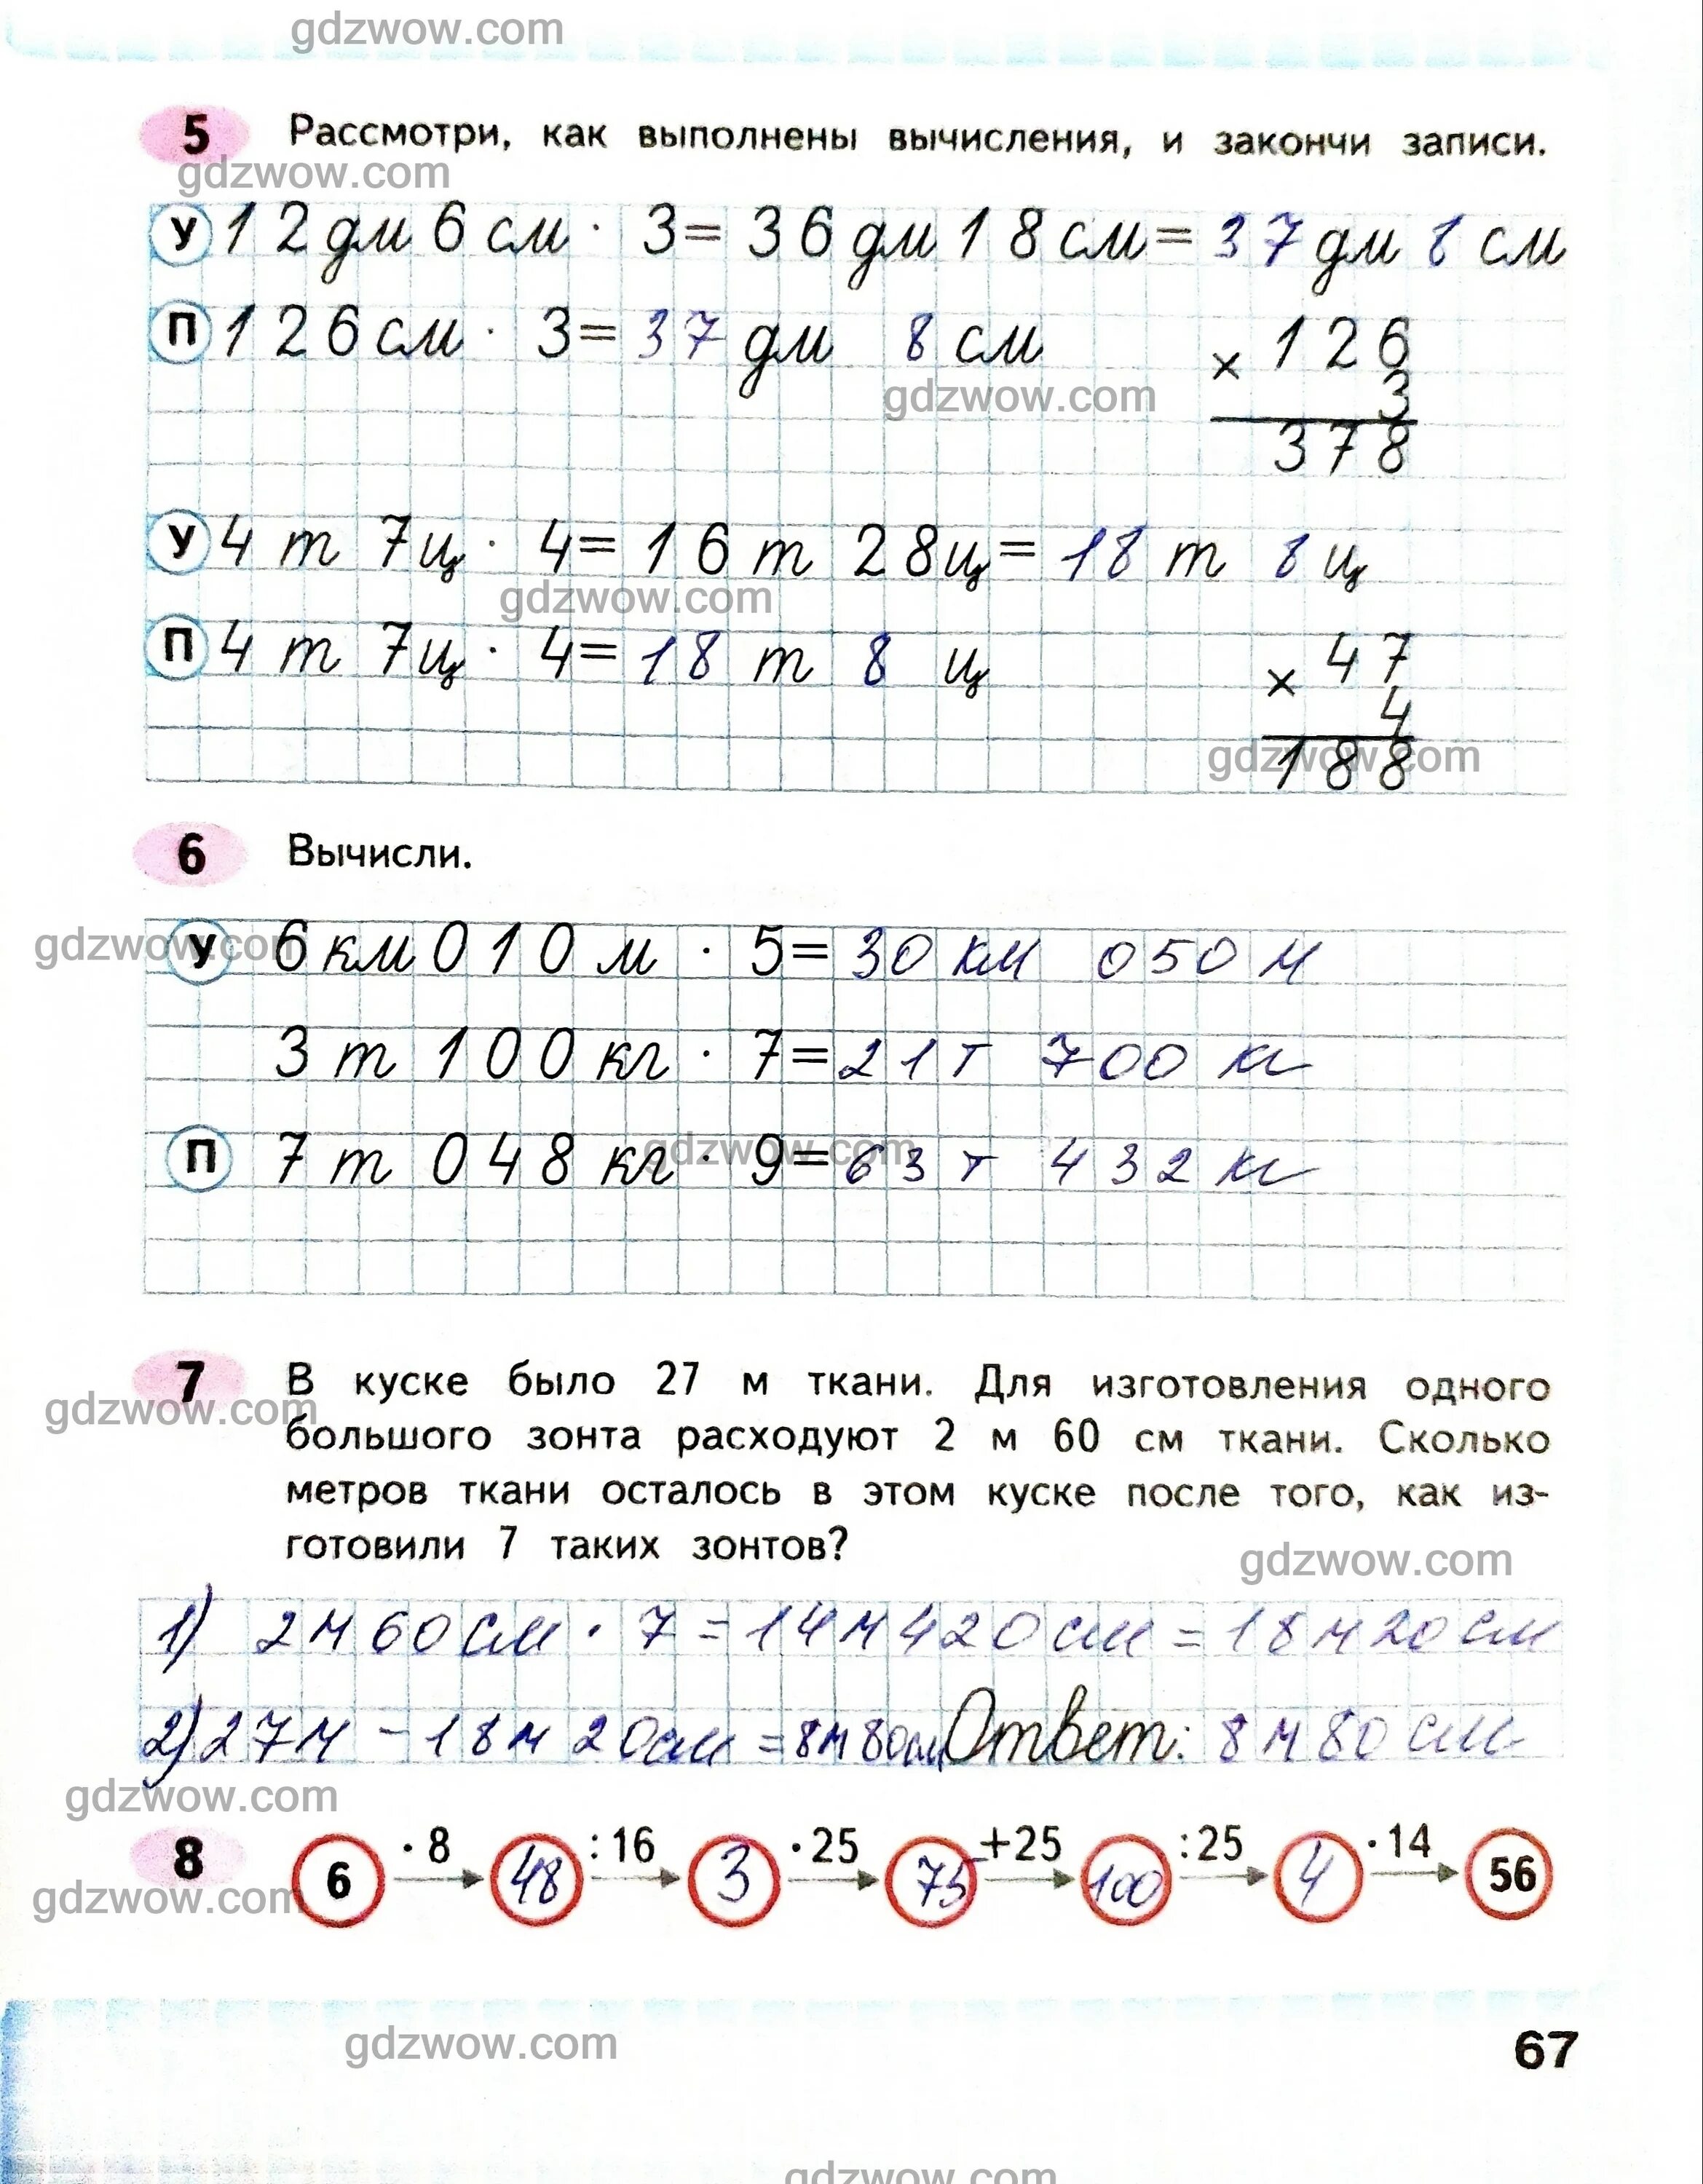 gdzwow.com
5 Рассмотри, как выполнены вычисления, и закончи записи.
gdzwow.com
У 12 дм 6 см · 3 = 36 дм 18 см = 37 дм 8 см
П 126 см · 3 = 37 дм 8 см
× 126
gdzwow.com
3
378
У 4 т 7 ц · 4 = 16 т 28 ц = 18 т 8 ц
gdzwow.com
П 4 т 7 ц · 4 = 18 т 8 ц
× 47
4
gdzwow.com
188
6 Вычисли.
gdzwow.com
У 6 км 010 м · 5 = 30 км 050 м
3 т 100 кг · 7 = 21 т 700 кг
gdzwow.com
П 7 т 048 кг · 9 = 63 т 432 кг
7 В куске было 27 м ткани. Для изготовления одного
gdzwow.com
большого зонта расходуют 2 м 60 см ткани. Сколько
метров ткани осталось в этом куске после того, как из-
готовили 7 таких зонтов?
gdzwow.com
1) 2 м 60 см · 7 = 14 м 420 см = 18 м 20 см
2) 27 м - 18 м 20 см = 8 м 80 см Ответ: 8 м 80 см
gdzwow.com
8 6 · 8 48 : 16 3 · 25 75 + 25 100 : 25 4 · 14 56
gdzwow.com
gdzwow.com
67
gdzwow.com